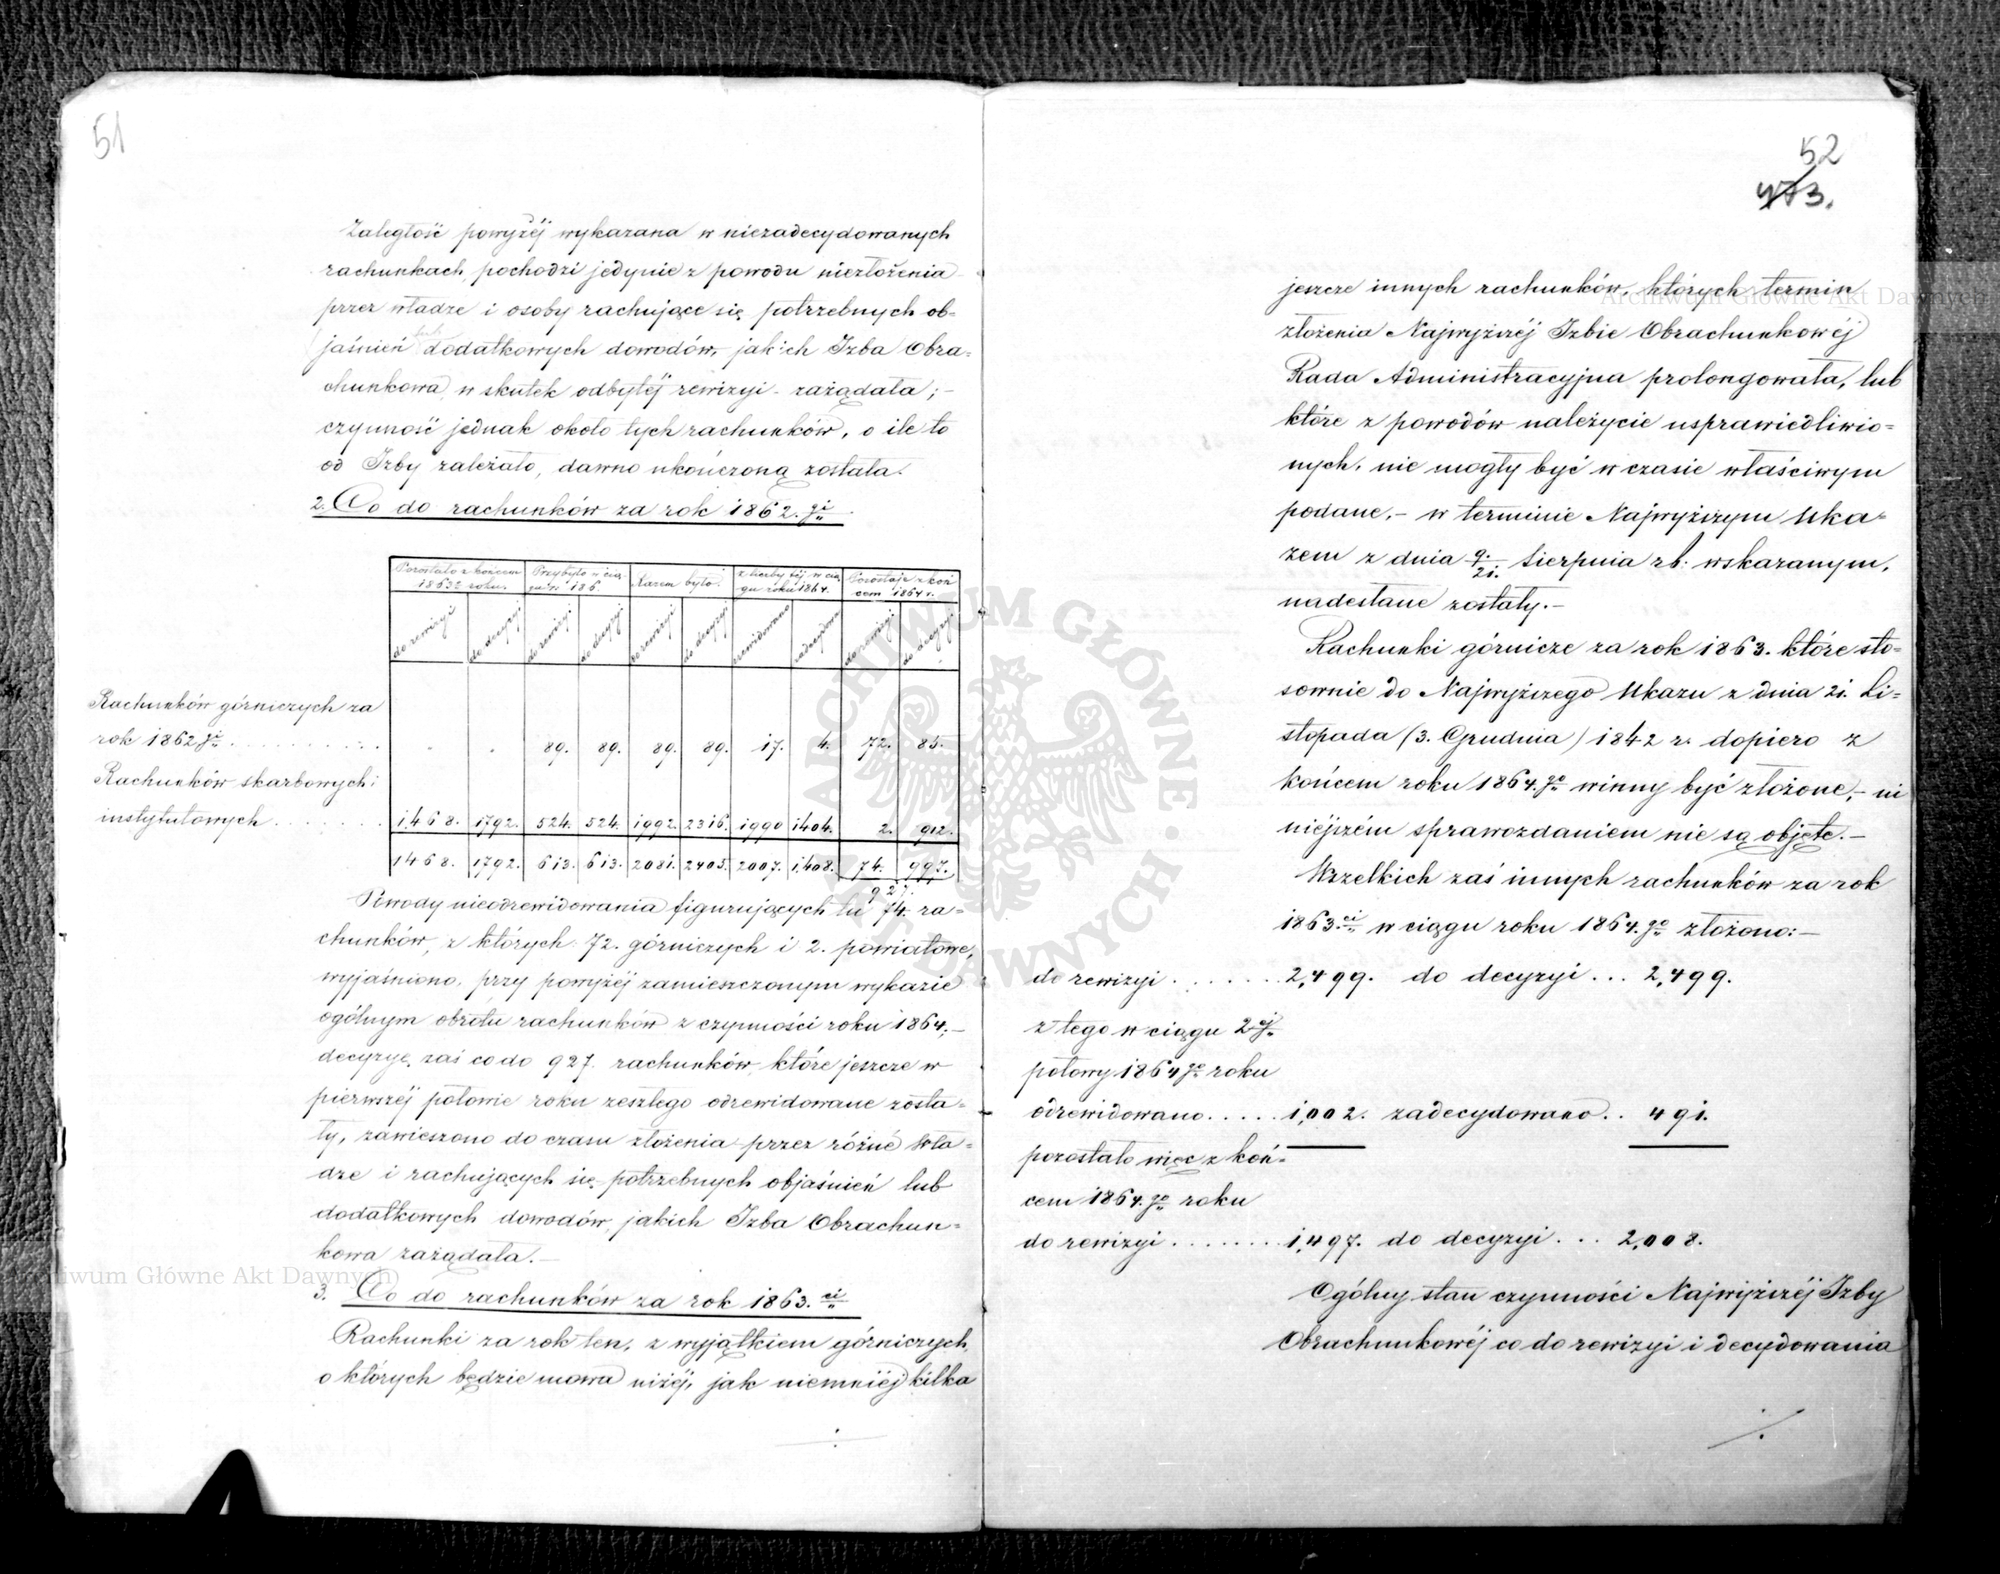 51
Zaległość powyżéj wykazana w niezadecydowanych
rachunkach, pochodzi jedynie z powodu niezłożenia
przez władze i osoby rachujące się potrzebnych ob-
jaśnień lub dodatkowych dowodów, jakich Izba Obra-
chunkowa w skutek odbytéj rewizyi zażądała; -
czynność jednak około tych rachunków, o ile to
od Izby zależało, dawno ukończoną została.
2. Co do rachunków za rok 1862. gi
Pozostało z końcem 1863 roku. Przybyło w cią- gu r. 186 Razem było. z liczby téj w cią- gu roku 1864. Pozostaje z koń- cem 1864 r.
do rewizyi do decyzyi do rewizyi do decyzyi do rewizyi do decyzyi rewidowano zadecydowano do rewizyi do decyzyi
Rachunków górniczych za
rok 1862 gi . . . . 89. 89. 89. 89. 17. 4. 72. 85.
Rachunków skarbowych i
instytutowych . . . . 1,468. 1792. 524. 524. 1992. 2316. 1990 1404. 2. 912.
1468. 1792. 613. 613. 2081. 2405. 2007. 1,408. 74. 997.
927.
Powody nieodrewidowania figurujących tu 74. ra-
chunków, z których 72. górniczych i 2. powiatowe,
wyjaśniono, przy powyżéj zamieszczonym wykazie
ogólnym obrotu rachunków z czynności roku 1864; -
decyzye zaś co do 927. rachunków, które jeszcze w
pierwszéj połowie roku zeszłego odrewidowane zosta-
ły, zawieszono do czasu złożenia przez różne wła-
dze i rachujących się potrzebnych objaśnień lub
dodatkowych dowodów, jakich Izba Obrachun-
kowa zażądała. -
3. Co do rachunków za rok 1863. ci
Rachunki za rok ten, z wyjątkiem górniczych,
o których będzie mowa niżéj, jak niemniéj kilka
52
473.
jeszcze innych rachunków, których termin
złożenia Najwyższéj Izbie Obrachunkowéj
Rada Administracyjna prolongowała, lub
które z powodów należycie usprawiedliwio-
nych, nie mogły być w czasie właściwym
podane, - w terminie Najwyższym Uka-
zem z dnia 9/21. Sierpnia r b. wskazanym,
nadesłane zostały. -
Rachunki górnicze za rok 1863. które sto-
sownie do Najwyższego Ukazu z dnia 21. Li-
stopada (3. Grudnia) 1842 r. dopiero z
końcem roku 1864. go winny być złożone, - ni
niéjszém sprawozdaniem nie są objęte. -
Wszelkich zaś innych rachunków za rok
1863. ci w ciągu roku 1864. go złożono: -
do rewizyi . . . . . . . 2,499. do decyzyi . . . 2,499.
z tego w ciągu 2-éj
połowy 1864 go roku
odrewidowano . . . . . 1,002. zadecydowano . . 491.
pozostało więc z koń-
cem 1864. go roku
do rewizyi . . . . . . . . 1,497. do decyzyi . . . 2,008.
Ogólny stan czynności Najwyższéj Izby
Obrachunkowéj co do rewizyi i decydowania
Archiwum Główne Akt Dawnych
Archiwum Główne Akt Dawnych
ARCHIWUM GŁÓWNE AKT DAWNYCH